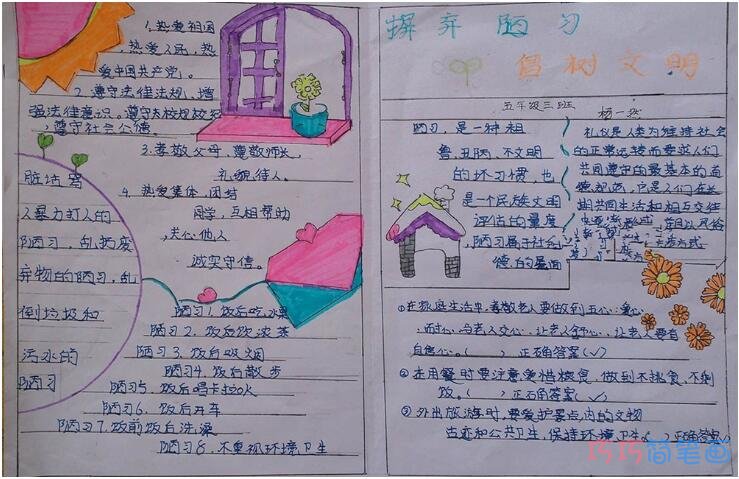 1.热爱祖国
热爱人民,热
爱中国共产党。
2.遵守法律法规,增
强法律意识。遵守校规校纪
,遵守社会公德。
3.孝敬父母,尊敬师长,
礼貌待人。
4.热爱集体,团结
同学,互相帮助
,关心他人
诚实守信。
脏话骂
人暴力打人的
陋习,乱扔废
弃物的陋习,乱
倒垃圾和
污水的
陋习
陋习1.饭后吃水果
陋习2.饭后饮浓茶
陋习3.饭后吸烟
陋习4.饭后散步
陋习5.饭后唱卡拉OK
陋习6.饭后开车
陋习7.饭前饭后洗澡
陋习8.不重视环境卫生
摒弃陋习
倡树文明
五年级三班
杨一然
陋习,是一种粗
鲁,丑陋,不文明
的坏习惯,也
是一个民族文明
评估的量度
,陋习属于社会公
德的层面
礼仪是人类为维持社会
的正常运转而要求人们
共同遵守的最基本的道
德规范,它是人们在长
期共同生活和相互交往
中
并且以风俗
方式
①在家庭生活中,尊敬老人要做到五心:爱心
、耐心、与老人交心、让老人舒心、让老人要有
自信心。( )正确答案(✓)
②在用餐时要注意爱惜粮食,做到不挑食,不剩
饭。( )正确答案(✓)
③外出旅游时,要爱护景点内的文物
古迹和公共卫生,保持环境卫生。( )正确答案
巧巧简笔画